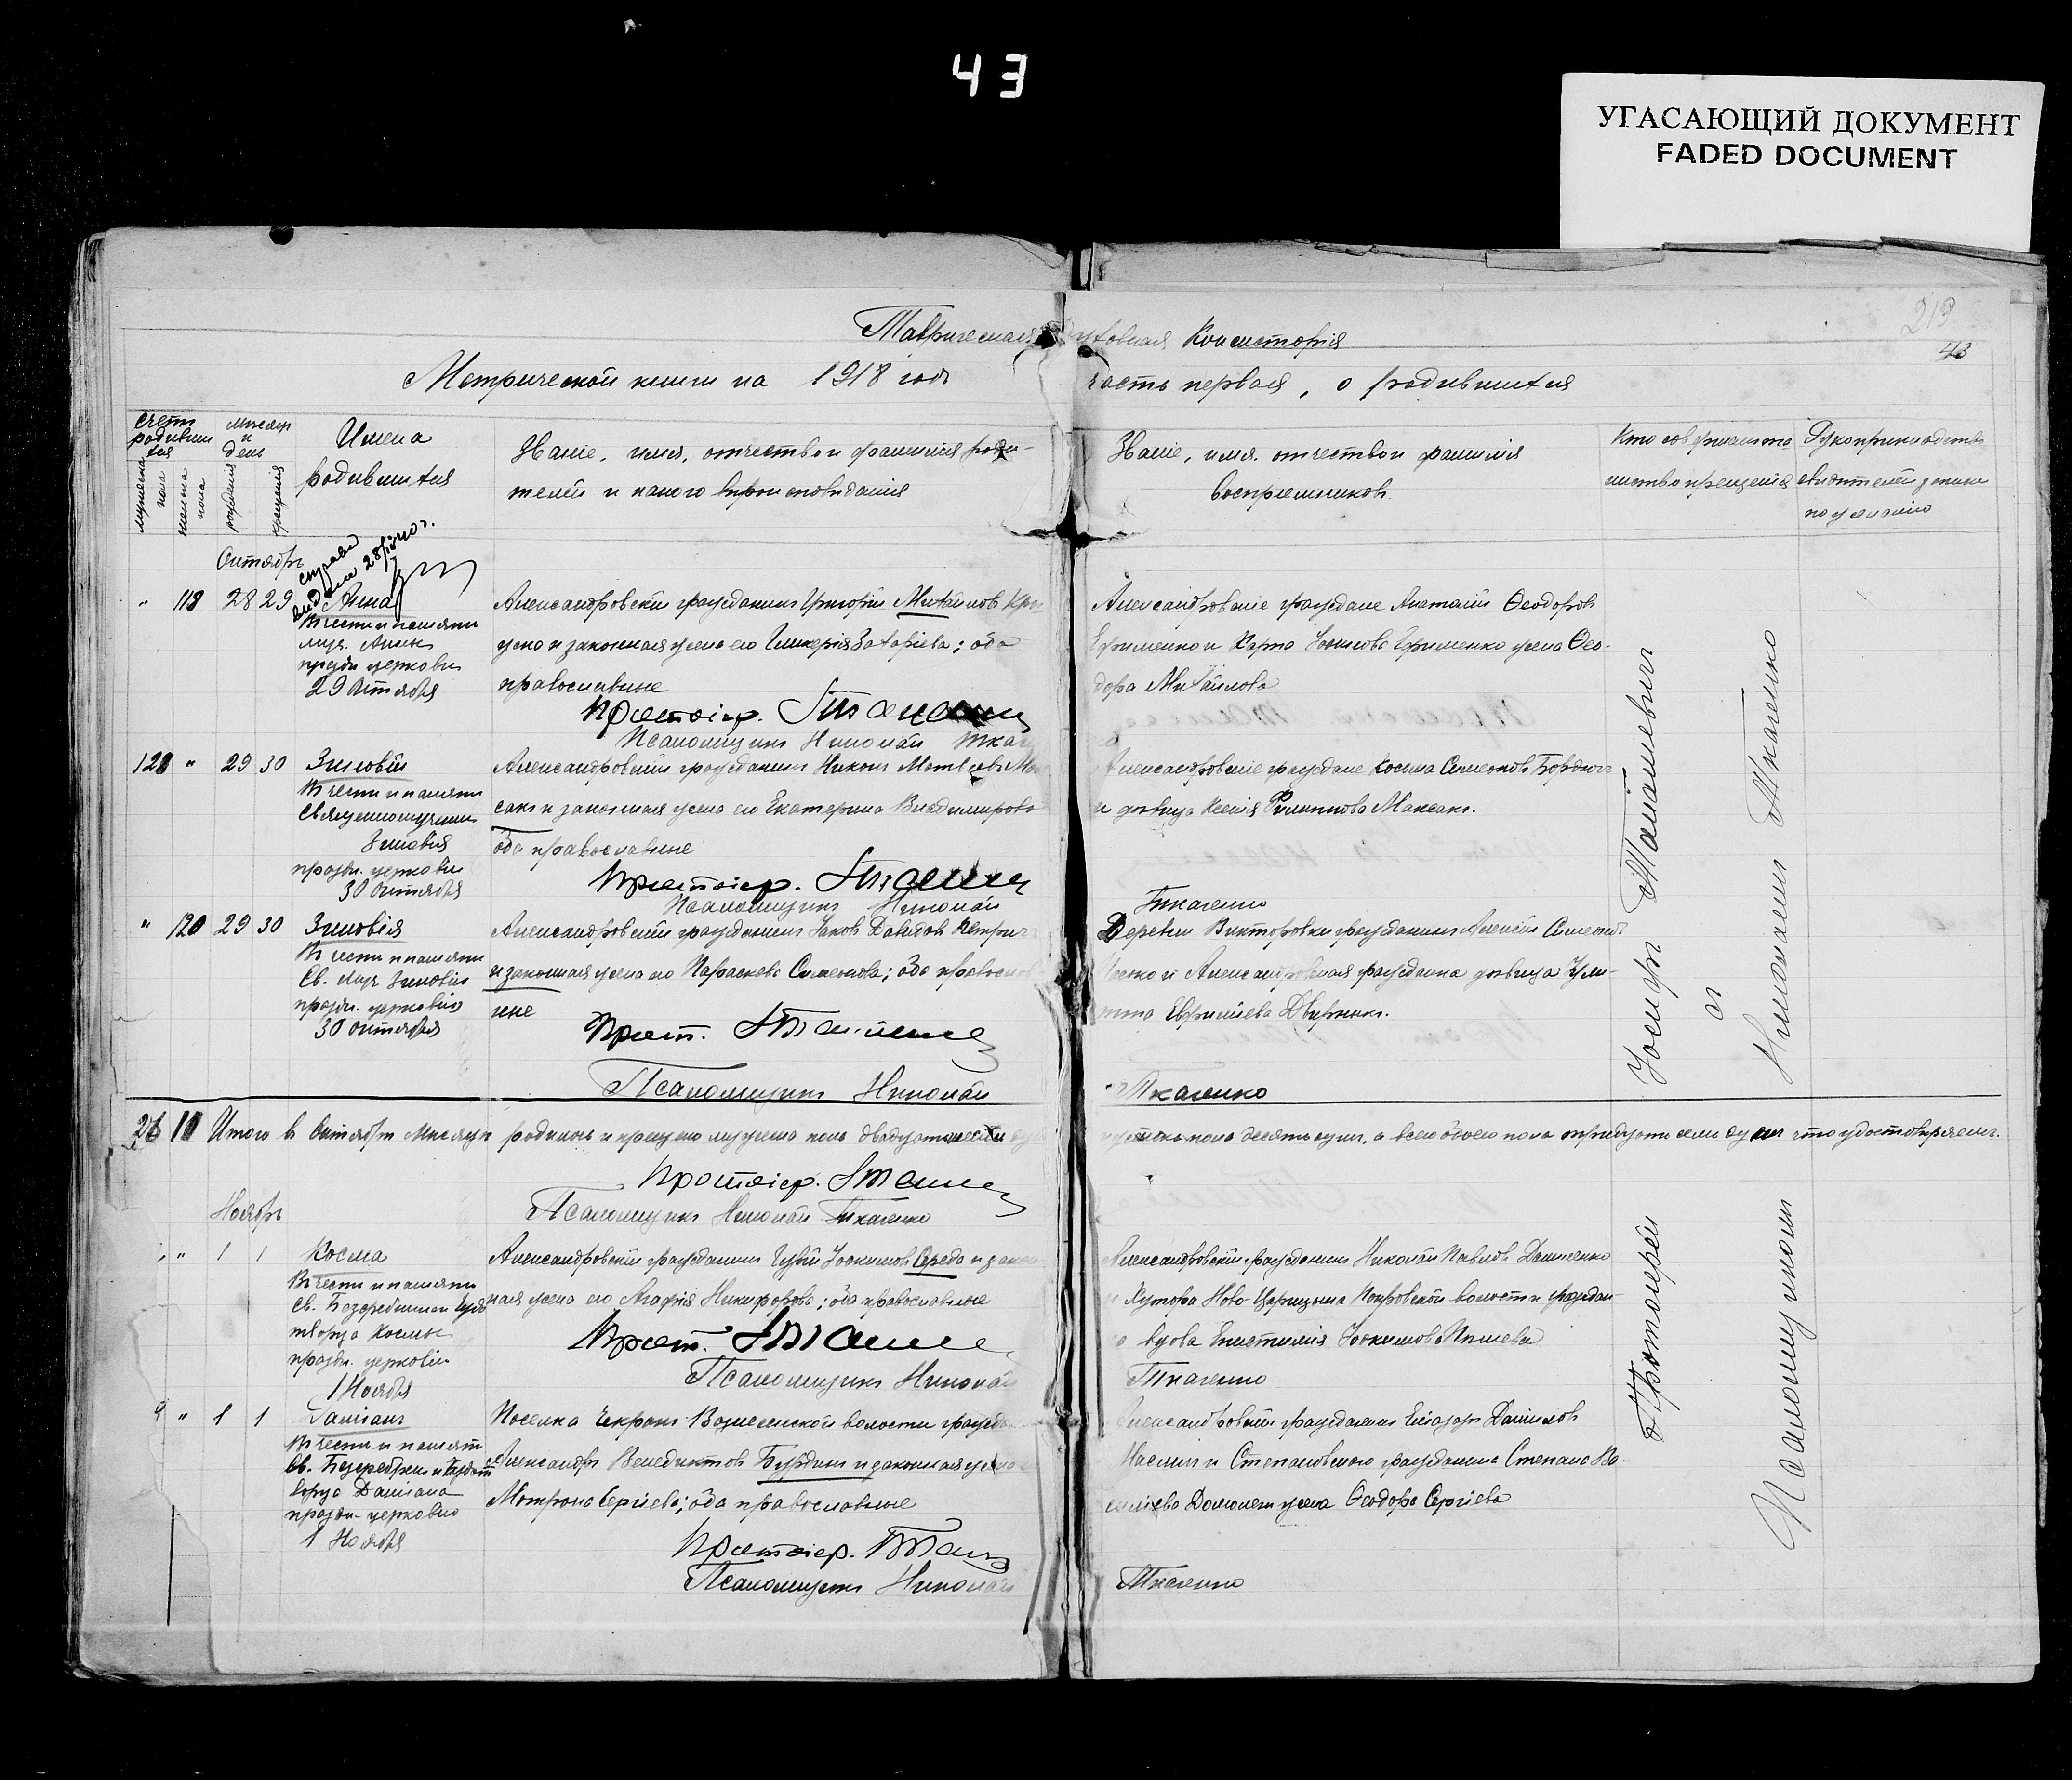 43
УГАСАЮЩИЙ ДОКУМЕНТ
FADED DOCUMENT
213
43
Таврическая Духовная Консисторія
Метрической книги на 1918 годъ часть первая, о родившихся
Счетъ родившихся
мужеска пола
женска пола
Мѣсяцъ и день
рожденія
крещенія
Имена
родившихся
Званіе, имя, отчество и фамилія роди-
телей и какого вѣроисповѣданія
Званіе, имя, отчество и фамилія
воспріемниковъ
Кто совершалъ та-
инство крещенія
Рукоприкладство
свидѣтелей записи
по желанію
Октябрь
28/IV 40 г.
" 119 28 29 Анна
Въ честь и память
муч. Анны
праздн. церковію
29 Октября
Александровскій гражданинъ Григорій Михайловъ
и законная жена его Гликерія Захаріева; оба
православные
Протоіер.
Псаломщикъ Николай
Александровскіе граждане Анатолій Ѳеодоровъ
Ефименко и Ефименко жена Ѳео-
дора Михайлова
29 30 Зиновій
Въ честь и память
Священномученика
Зиновія
праздн. церковію
30 Октября
Александровскій гражданинъ Никонъ Матвѣевъ
сакъ и законная жена его Екатерина Владимирова
оба православные
Протоіер.
Псаломщикъ Николай
Александровскіе граждане Косьма Симеоновъ
и дѣвица Ксенія Филиппова Максакъ.
Ткаченко
" 120 29 30 Зиновія
Въ честь и память
Св. муч. Зиновіи
праздн. церковію
30 Октября
Александровскій гражданинъ Яковъ Давидовъ
и законная жена его Параскева Симеонова; оба православ-
ные
Прот.
Псаломщикъ Николай
Деревни Викторовки гражданинъ Алексій Симеоновъ
и Александровская гражданка дѣвица Ули-
Евфиміева Дворникъ.
Ткаченко
Итого въ Октябрѣ мѣсяцѣ родилось и крещено мужеска пола двадцать
женска пола десять душъ, а всего обоего пола тридцать семь душъ что удостовѣряемъ.
Протоіер.
Псаломщикъ Николай Ткаченко
Ноябрь
" 1 1 Косма
Въ честь и память
Св. Безсребренника Чудо
творца Космы
праздн. церковію
1 Ноября
Александровскій гражданинъ Іоакимовъ Середа и закон-
ная жена его Агафія Никифорова; оба православные
Прот.
Псаломщикъ Николай
Александровскій гражданинъ Николай Павловъ Даниленко
и Хутора Ново-Царицына Покровской волости граждан-
вдова Епистимія Іоакимова
Ткаченко
" 1 1 Даміанъ
Въ честь и память
Св. Безсребрен. и Чудот
ворца Даміана
праздн. церковію
1 Ноября
Поселка Чекракъ Вознесенской волости граждан
Александръ Венедиктовъ Бурдинъ и законная жена
Матрона Сергіева; оба православные
Протоіер.
Псаломщикъ Николай
Александровскій гражданинъ Елеазаръ Даниловъ
и Степановского гражданина Степана Ва-
силіева жена Ѳеодора Сергіева
Ткаченко
Протоіерей Іосифъ
съ
Псаломщикомъ Николаемъ Ткаченко